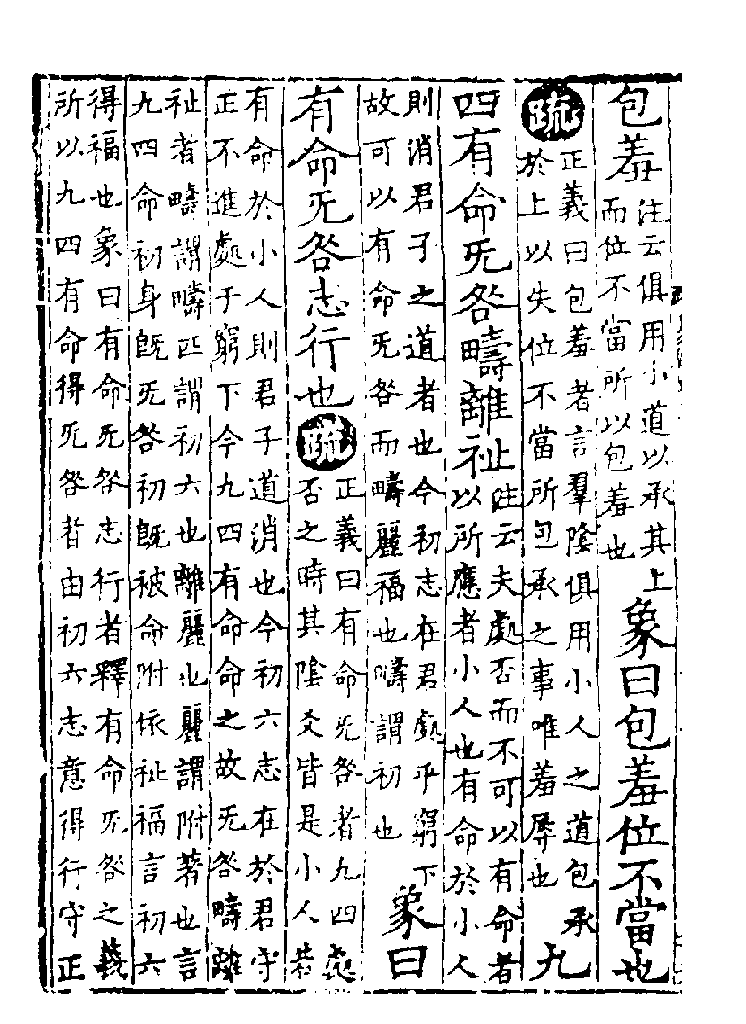 包羞注云俱用小道以承其上
而位不當所以包羞也
象曰包羞位不當也
疏正義曰包羞者言羣陰俱用小人之道包承
於上以失位不當所包承之事唯羞辱也
九
四有命无咎疇離祉注云夫處否而不可以有命者
以所應者小人也有命於小人
則消君子之道者也今初志在君處乎窮下
故可以有命无咎而疇麗福也疇謂初也
象曰
有命无咎志行也疏正義曰有命无咎者九四處
否之時其陰爻皆是小人若
有命於小人則君子道消也今初六志在於君守
正不進處于窮下今九四有命命之故无咎疇離
祉者疇謂疇匹謂初六也離麗也麗謂附著也言
九四命初身既无咎初既被命附依祉福言初六
得福也象曰有命无咎志行者釋有命无咎之義
所以九四有命得无咎者由初六志意得行守正